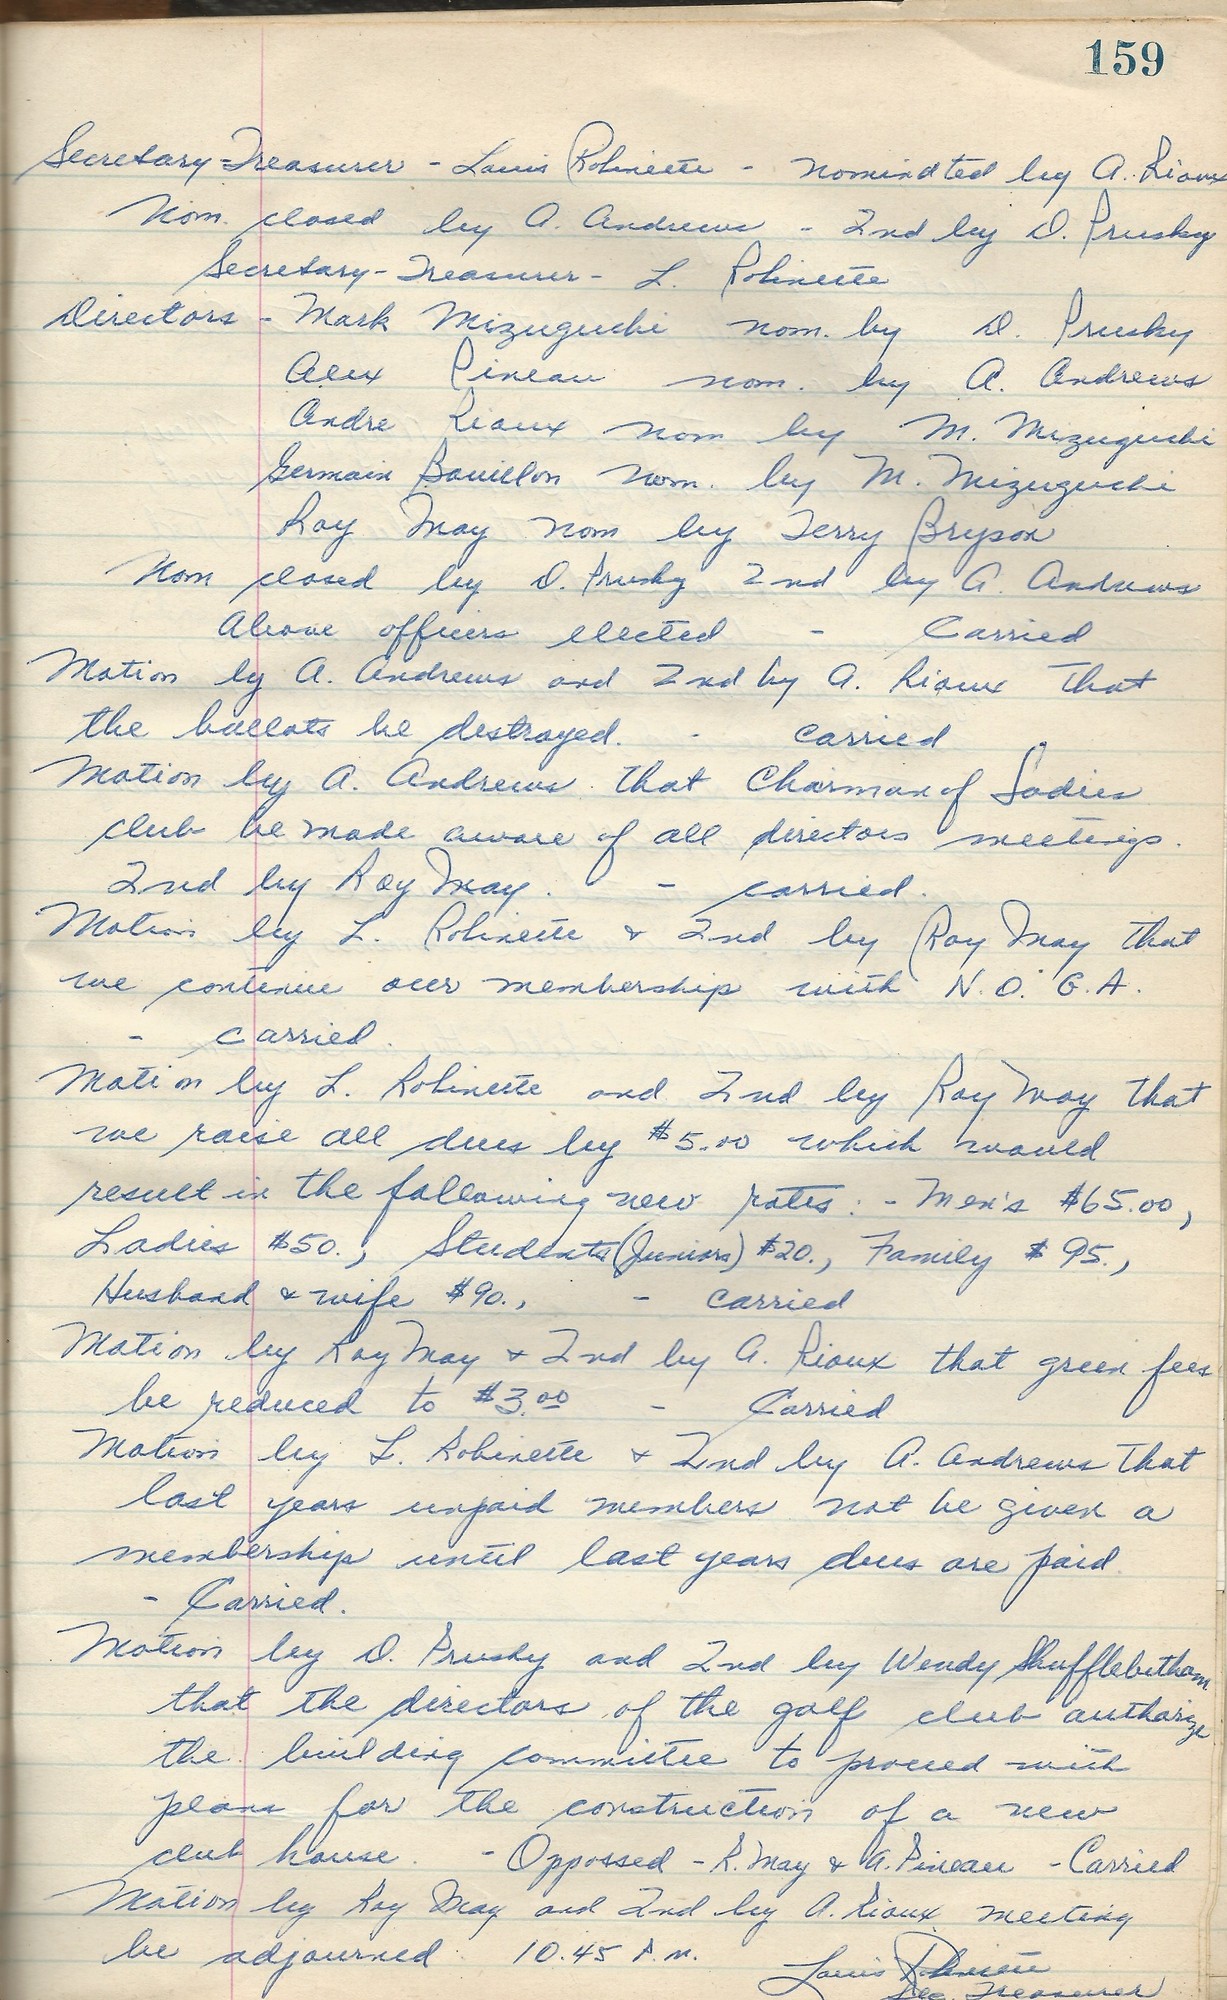 159
Secretary-Treasurer - Louis Robinette - nominated by A. Rioux
Nom. closed by A. Andrews - 2nd by D. Prusky
Secretary-Treasurer - L. Robinette
Directors - Mark Mizuguchi nom. by D. Prusky
Alex Pineau nom. by A. Andrews
Andre Rioux nom by M. Mizuguchi
Germain Bouillon nom. by M. Mizuguchi
Roy May nom by Terry Bryson
Nom closed by D. Prusky 2nd by A. Andrews
Above officers elected - Carried
Motion by A. Andrews and 2nd by A. Rioux that
the ballots be destroyed. - carried
Motion by A. Andrews that Chairman of Ladies
club be made aware of all directors meetings.
2nd by Roy May. - carried.
Motion by L. Robinette & 2nd by Roy May that
we continue our membership with N.O.G.A.
- carried.
Motion by L. Robinette and 2nd by Roy May that
we raise all dues by $5.00 which would
result in the following new rates: - Men's $65.00,
Ladies $50., Students (Juniors) $20., Family $95.,
Husband & wife $90., - carried
Motion by Roy May & 2nd by A. Rioux that green fees
be reduced to $3.00 - Carried
Motion by L. Robinette & 2nd by A. Andrews that
last years unpaid members not be given a
membership until last years dues are paid
- Carried.
Motion by D. Prusky and 2nd by Wendy Shufflebotham
that the directors of the golf club authorize
the building committee to proceed with
plans for the construction of a new
club house. - Oppossed - R. May & A. Pineau - Carried
Motion by Roy May and 2nd by A. Rioux meeting
be adjourned 10.45 P.M.
Louis Robinette
Sec. Treasurer